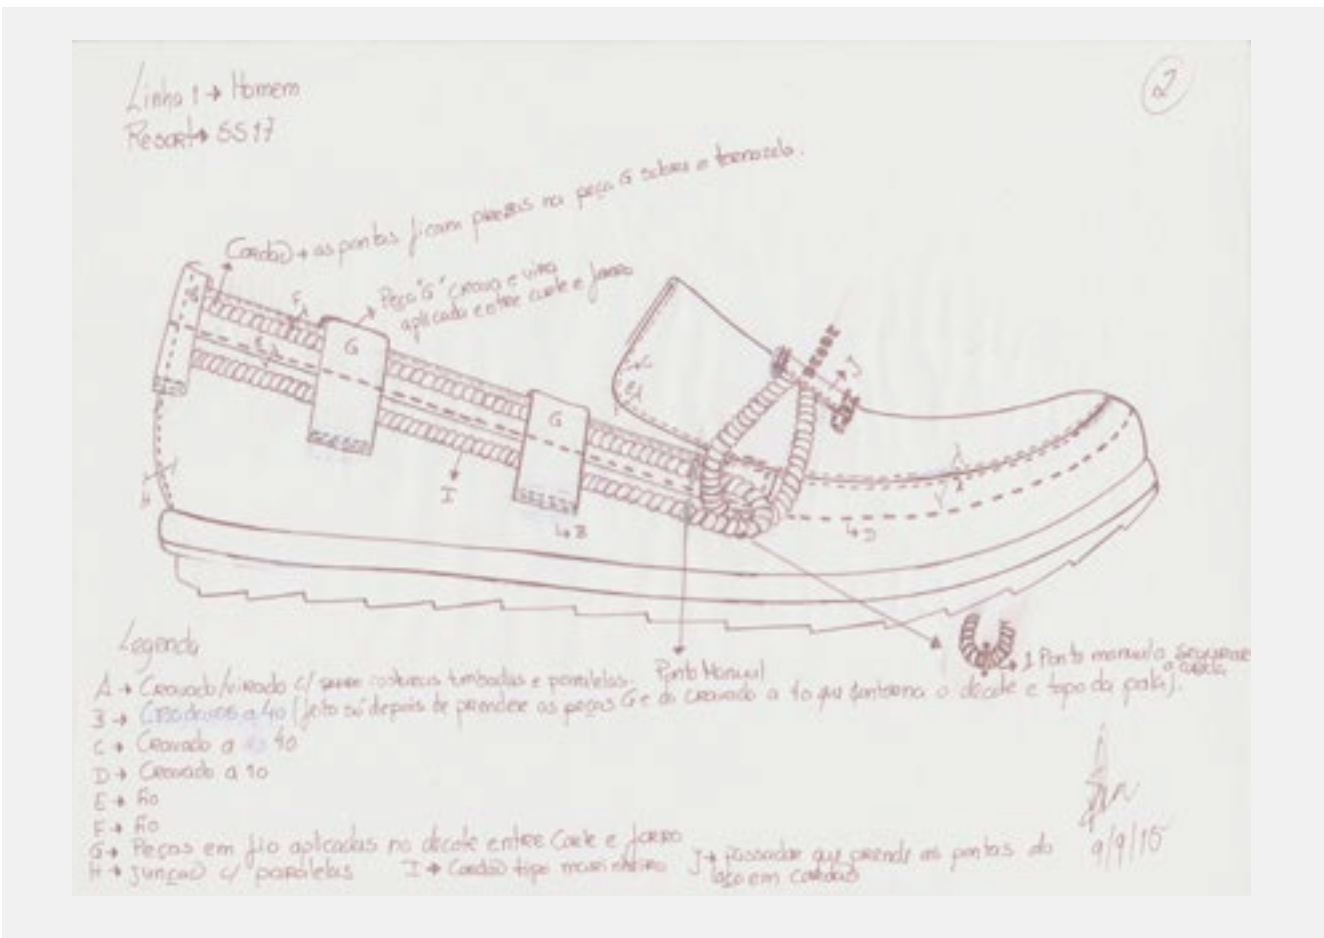 Linha 1 → Homem
2
Resort → SS17
Cordão → as pontas ficam presas na peça G sobre o tornozelo.
Peça "G" crava e vira
aplicada entre corte e forro
G
F
G
G
J
C
I
↳ B
↳ D
H
Legenda
Ponto Manual
1 Ponto manual a segurar
o corte
A → Cravado/virado c/ costuras tombadas e paralelas.
B → a 40 (feito só depois de prender as peças G e do cravado a 40 que contorna o decote e topo da pala).
C → Cravado a 40
D → Cravado a 10
E → fio
F → fio
G → Peças em fio aplicadas no decote entre Corte e forro
H → junção c/ paralelas I → Cordão tipo marinheiro J → passador que prende as pontas do
laço em cordão
9/9/15